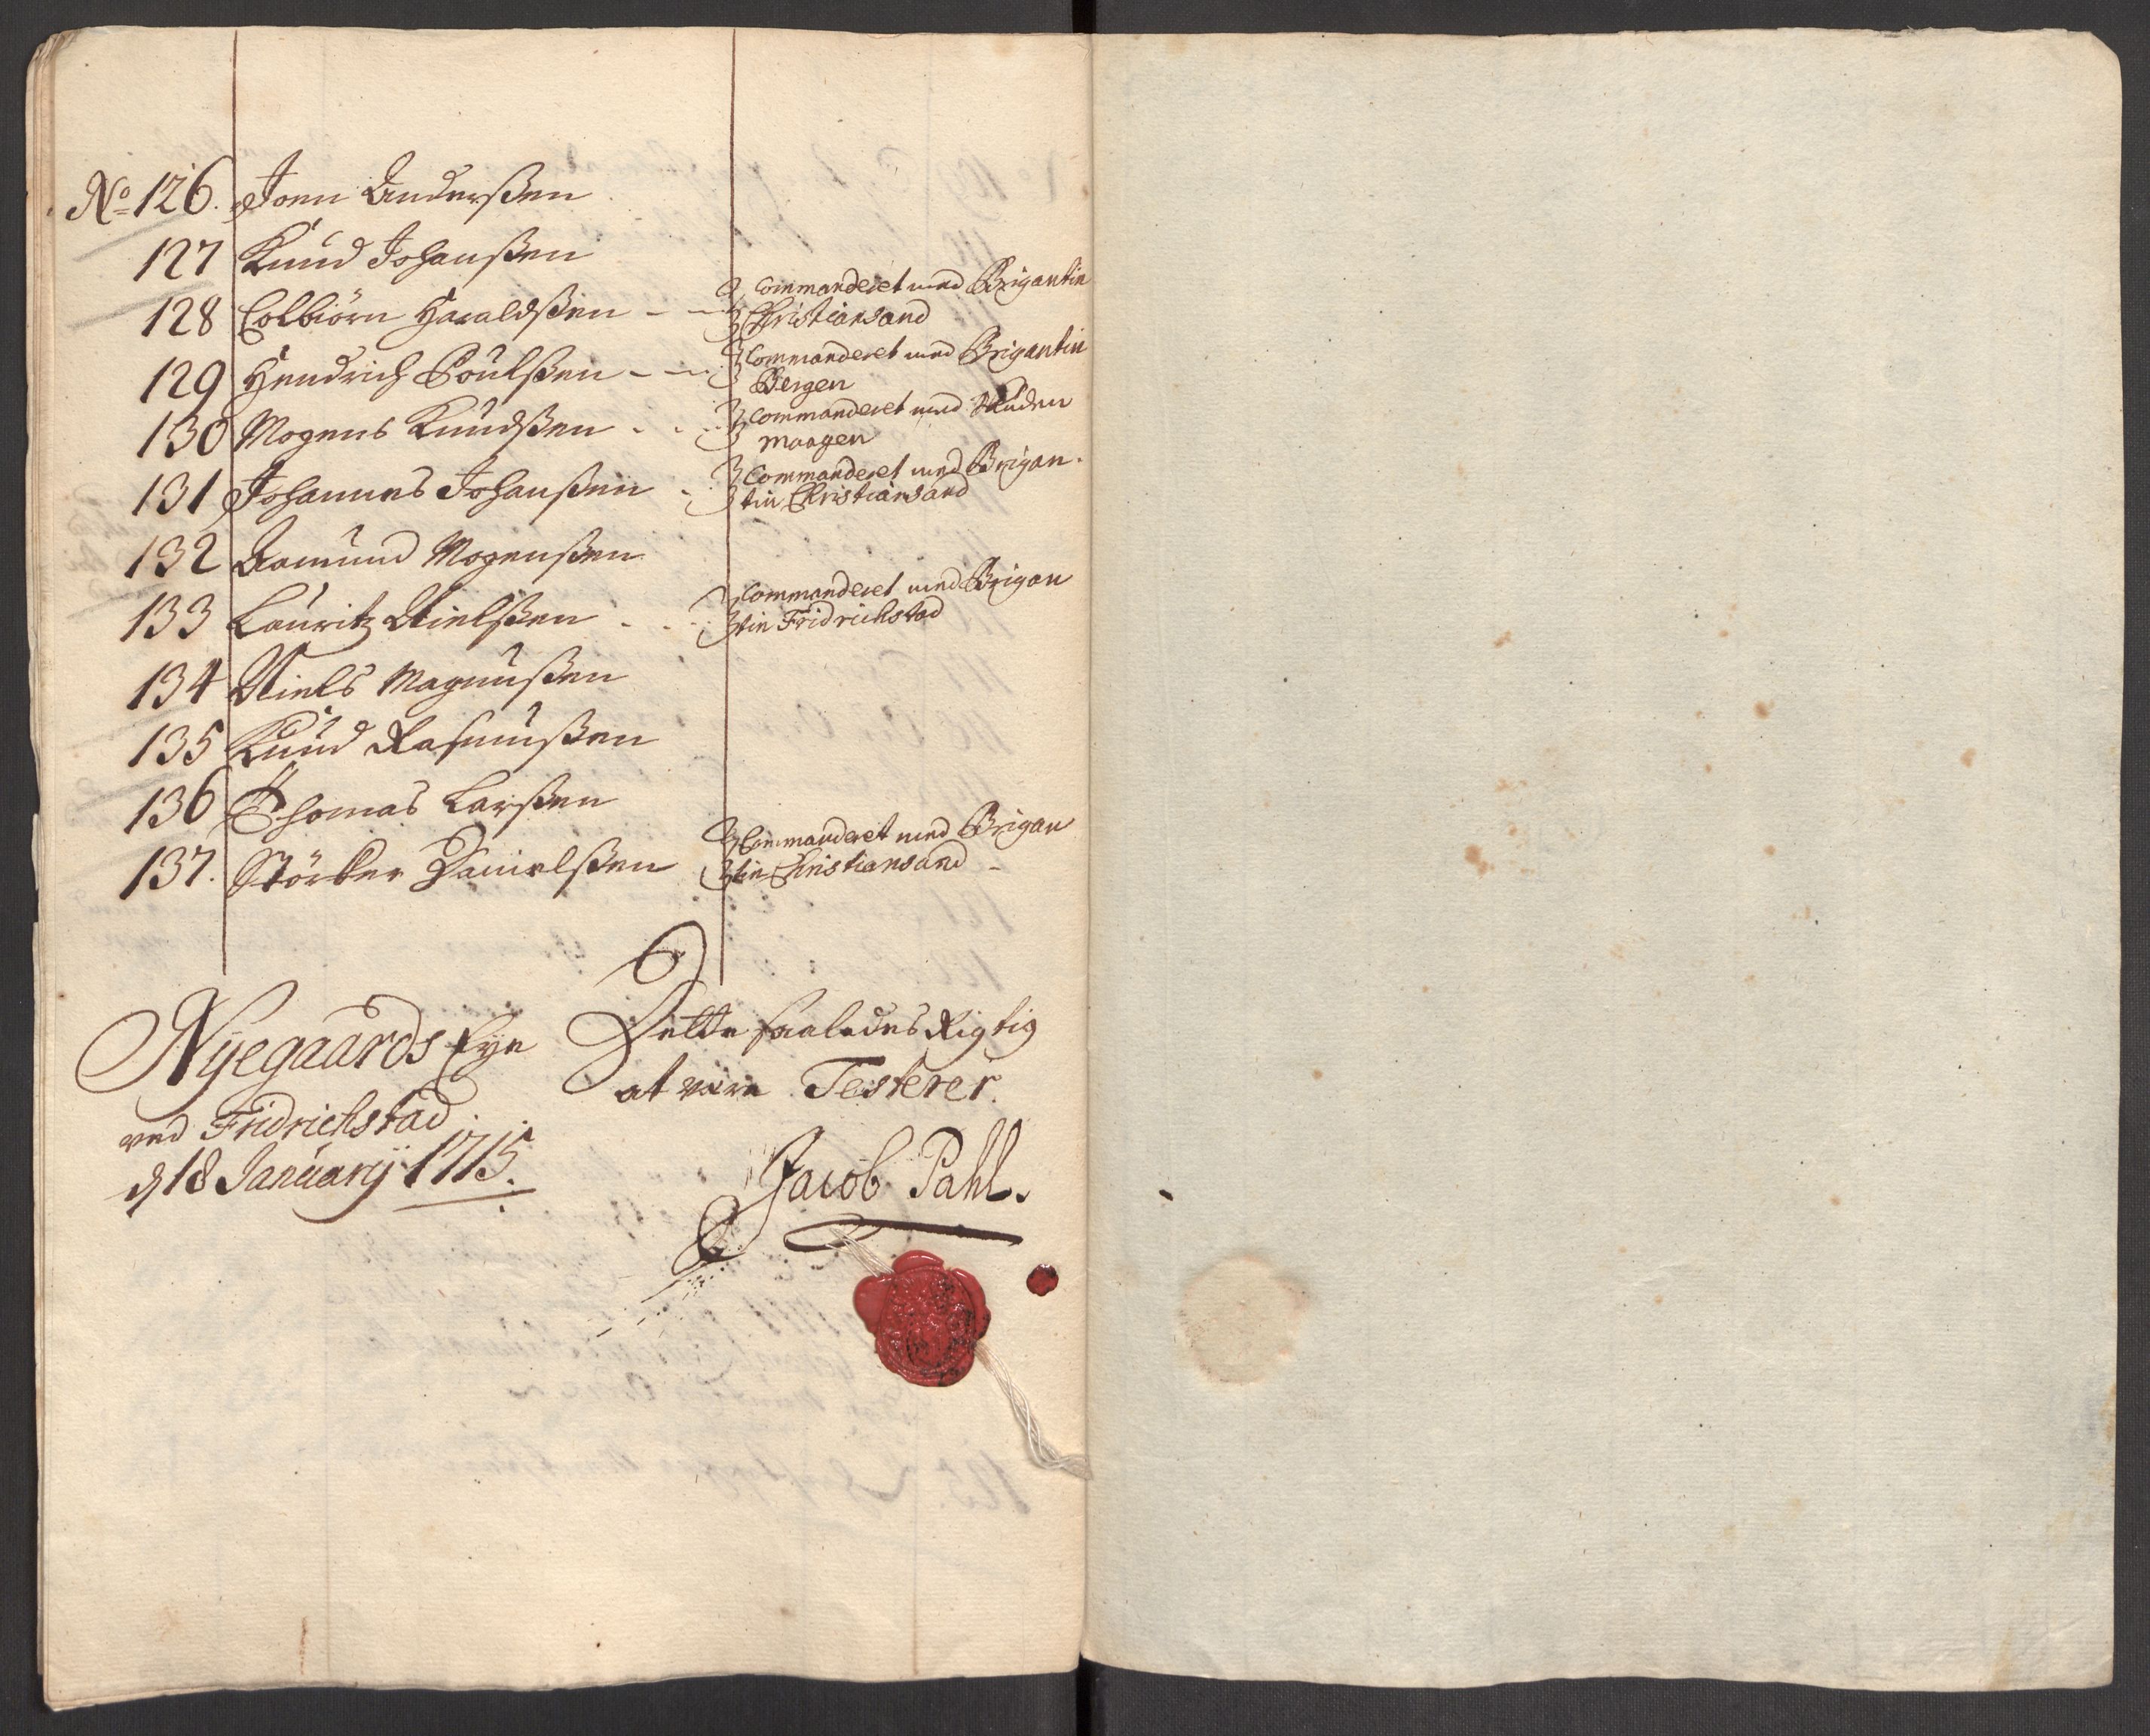 No 126. Joen Anderßen
127 Knud Johanßen
128 Colbiörn Haraldßen - - Commanderet med Brigantin
Christiansand
129 Hendrich Poulßen - - Commanderet med Brigantin
Bergen
130 Mogens Knudßen - - Commanderet med Skuden
Maagen
131 Johannes Johanßen - Commanderet med Brigan-
tin Christiansand
132 Aamund Mogenßen
133 Lauritz Nielßen - - Commanderet med Brigan
tin Fridrichstad
134 Niels Magnußen
135 Knud Rasmußen
136 Thomas Larßen
137. Störker Danielßen Commanderet med Brigan
tin Christiansand -
Nyegaards Eye
ved Fridrichstad
d 18 January 1715.
Dette saaledes Rigtig
at være Testerer.
Jacob Pahl.